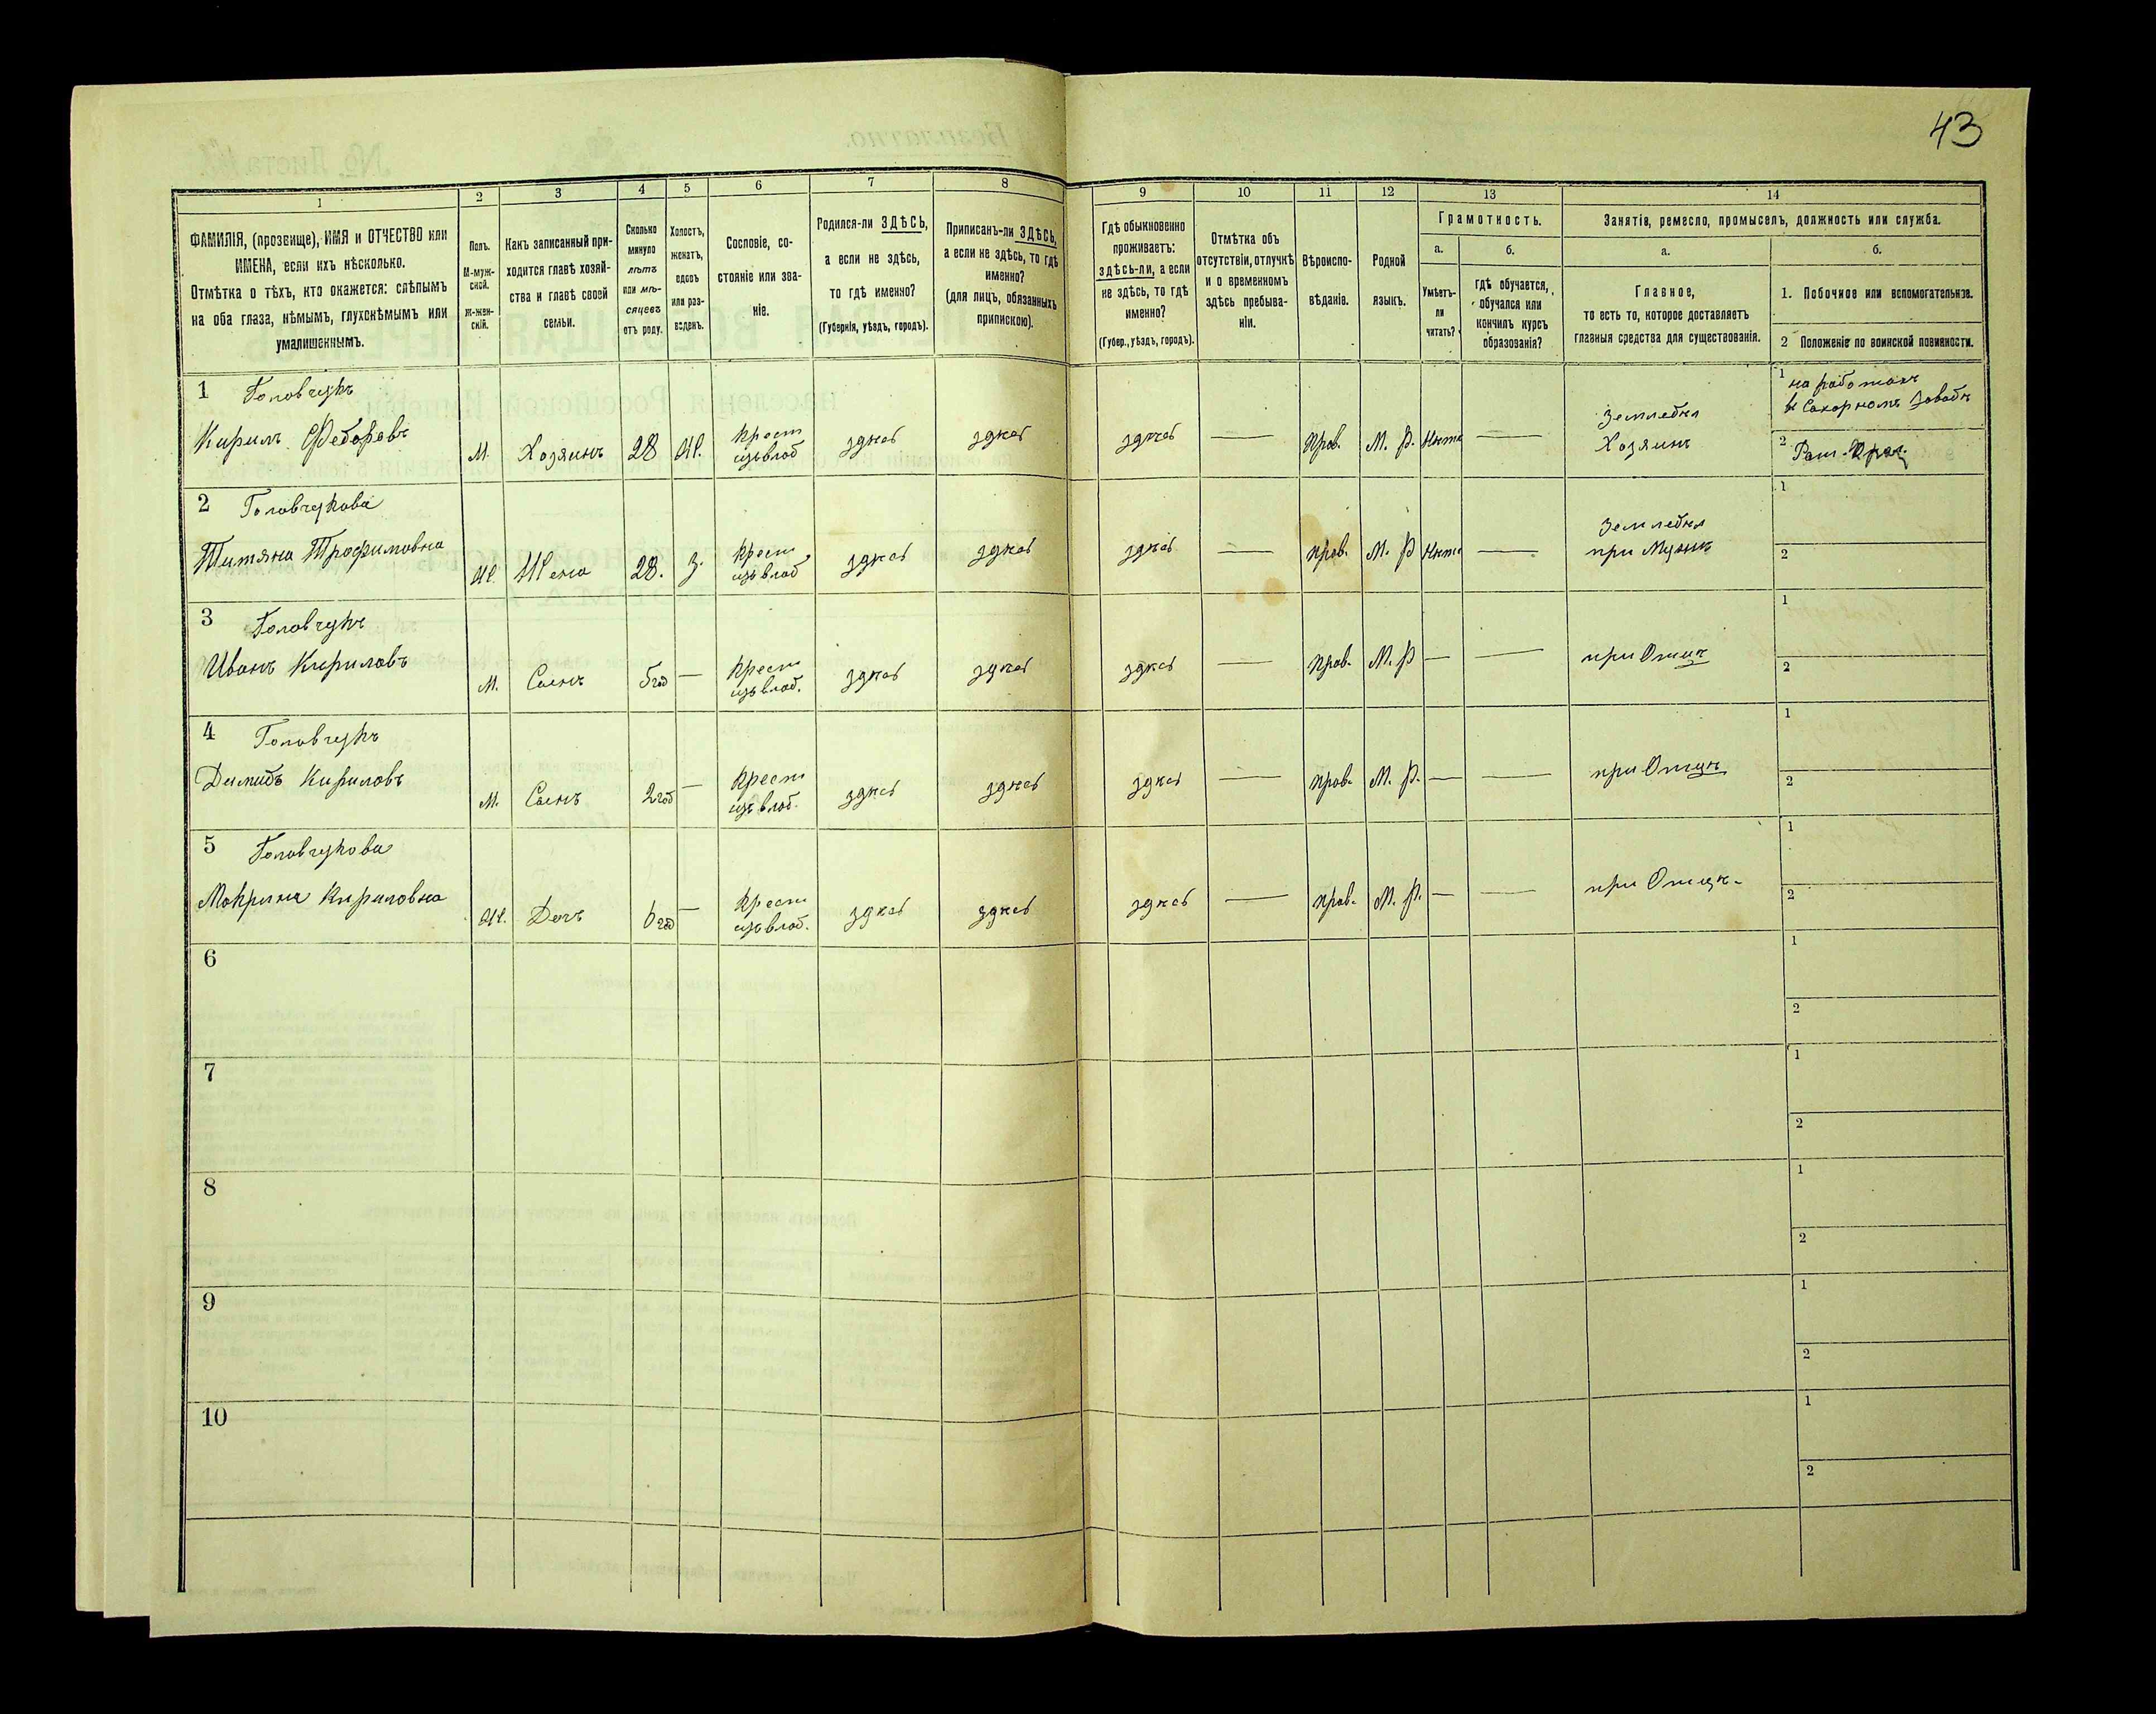 43
1 2 3 4 5 6 7 8 9 10 11 12 13 14
ФАМИЛІЯ, (прозвище), ИМЯ и ОТЧЕСТВО или
ИМЕНА, если ихъ нѣсколько.
Отмѣтка о тѣхъ, кто окажется: слѣпымъ
на оба глаза, нѣмымъ, глухонѣмымъ или
умалишеннымъ.
Полъ.
М-муж-
ской.
ж-жен-
скій.
Какъ записанный при-
ходится главѣ хозяй-
ства и главѣ своей
семьи.
Сколько
минуло
лѣтъ
или мѣ-
сяцевъ
отъ роду.
Холостъ,
женатъ,
вдовъ
или раз-
веденъ.
Сословіе, со-
стояніе или зва-
ніе.
Родился-ли ЗДѢСЬ,
а если не здѣсь,
то гдѣ именно?
(Губернія, уѣздъ, городъ).
Приписанъ-ли ЗДѢСЬ,
а если не здѣсь, то гдѣ
именно?
(для лицъ, обязанныхъ
припискою).
Гдѣ обыкновенно
проживаетъ:
здѣсь-ли, а если
не здѣсь, то гдѣ
именно?
(Губер., уѣздъ, городъ).
Отмѣтка объ
отсутствіи, отлучкѣ
и о временномъ
здѣсь пребыва-
ніи.
Вѣроиспо-
вѣданіе.
Родной
языкъ.
Грамотность.
а.
Умѣетъ-
ли
читать?
б.
гдѣ обучается,
обучался или
кончилъ курсъ
образованія?
Занятія, ремесло, промыселъ, должность или служба.
а.
Главное,
то есть то, которое доставляетъ
главныя средства для существованія.
б.
1. Побочное или вспомогательное.
2 Положеніе по воинской повинности.
1 Головчукъ
Кирилъ Федоровъ М. Хозяинъ 28 Ж. Крест изъ влад здѣсь здѣсь здѣсь — Прав. М. Р. Нѣтъ — Земледѣл Хозяинъ
1 на работахъ
въ Сахарномъ Заводѣ
2
2 Головчукова
Титяна Трофимовна Ж. Жена 28. З. Крест изъ влад здѣсь здѣсь здѣсь — прав. М. Р Нѣтъ — Земледѣл при Мужѣ
1
2
3 Головчукъ
Иванъ Кириловъ М. Сынъ 5 год — Крест изъ влад. здѣсь здѣсь здѣсь — прав. М. Р — — при Отцѣ
1
2
4 Головчукъ
Демидъ Кириловъ М. Сынъ 2 год — Крест изъ влад. здѣсь здѣсь здѣсь — прав. М. Р. — — при Отцѣ
1
2
5 Головчукова
Мокрина Кириловна Ж. Дочь 6 год — Крест изъ влад. здѣсь здѣсь здѣсь — прав. М. Р. — — при Отцѣ.
1
2
6
1
2
7
1
2
8
1
2
9
1
2
10
1
2